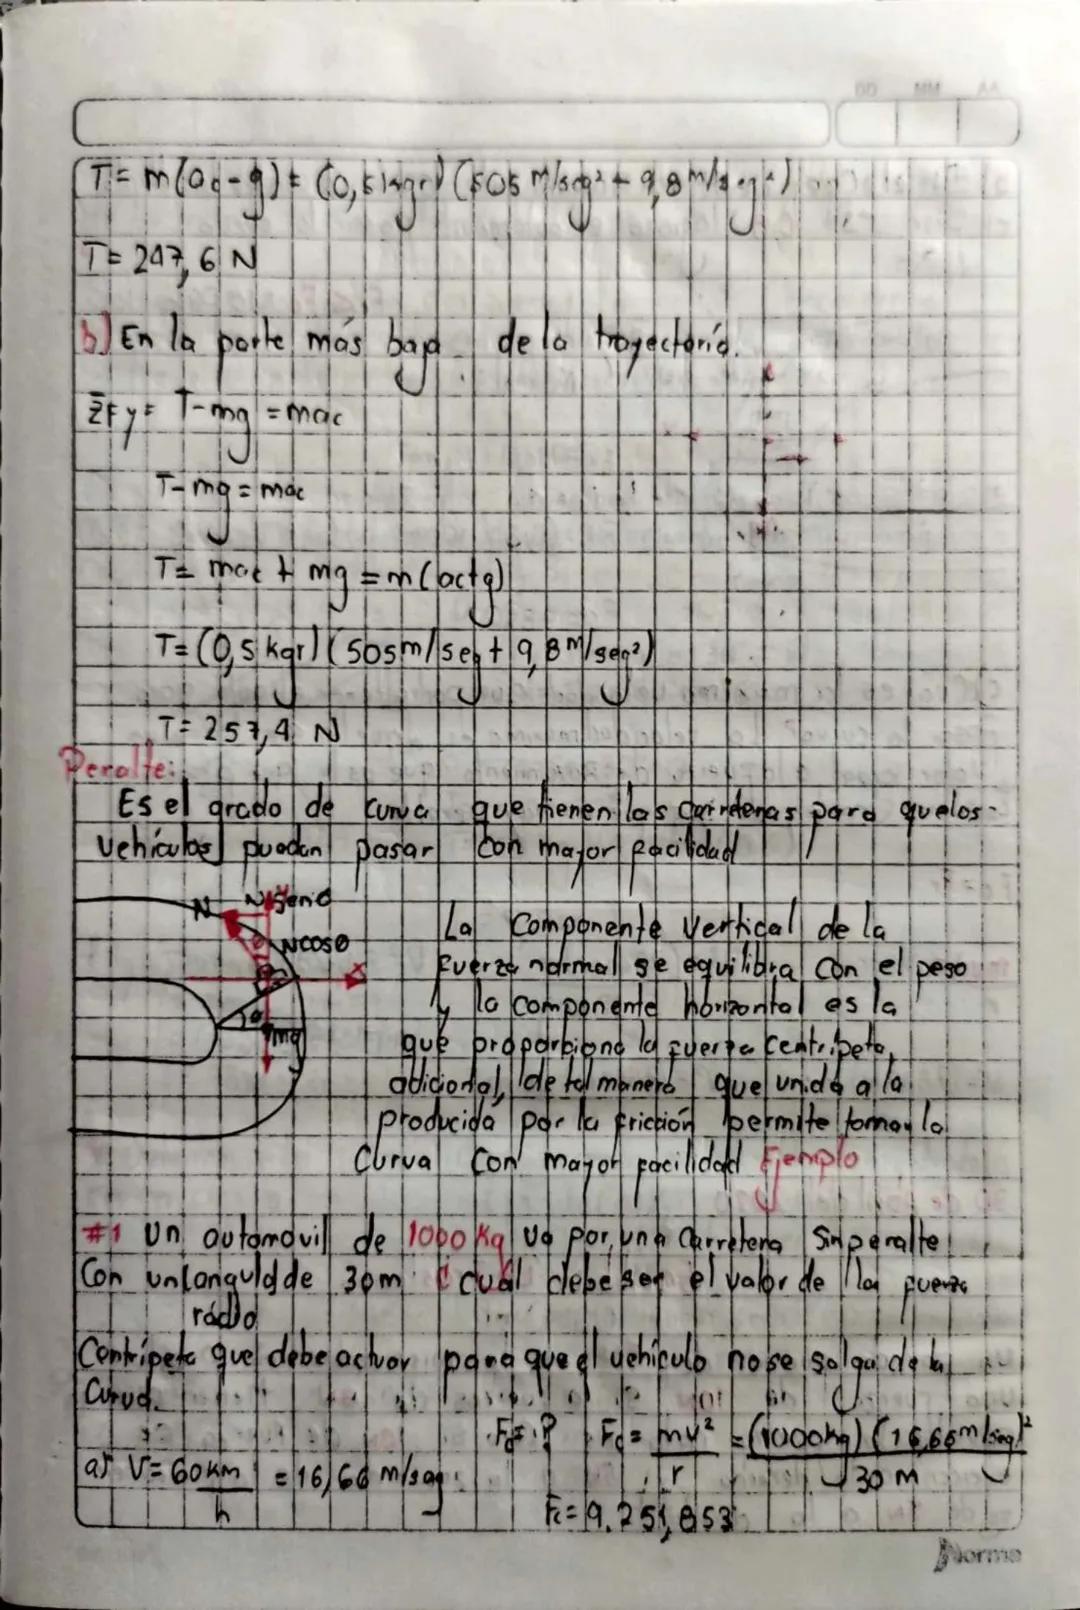 DD MM AA
T = m(ac-g) = (0,5 kgr) (505 m/seg² + 9,8 m/seg²)
T = 247,6 N
b) En la parte más baja de la trayectoria.
ΣFy = T-mg = mac
T-mg = mac
T = mac + mg = m(ac+g)
T = (0,5 kgr) (505m/seg + 9,8 m/seg²)
T = 257,4 N
Peralte:
Es el grado de curva que tienen las carreteras para que los
vehículos puedan pasar con mayor facilidad
N N senθ
N cosθ
x
θ
mg
La componente vertical de la
fuerza normal se equilibra con el peso
y la componente horizontal es la
que proporciona la fuerza centripeta,
adicional, de tal manera que unida a la
producida por la fricción permite tomar la
Curva con mayor facilidad Ejemplo
#1 Un automovil de 1000 Kg va por una Carretera Sin peralte
Con un de 30m ¿cuál debe ser el valor de la fuerza
radio
Centrípeta que debe actuar para que el vehículo no se salga de la
Curva.
Fc = ? Fc = mv²/r = (1000kg) (16,66m/seg)²/30 M
a) V = 60 km/h = 16,66 m/seg
Fc = 9.251,853
Norma